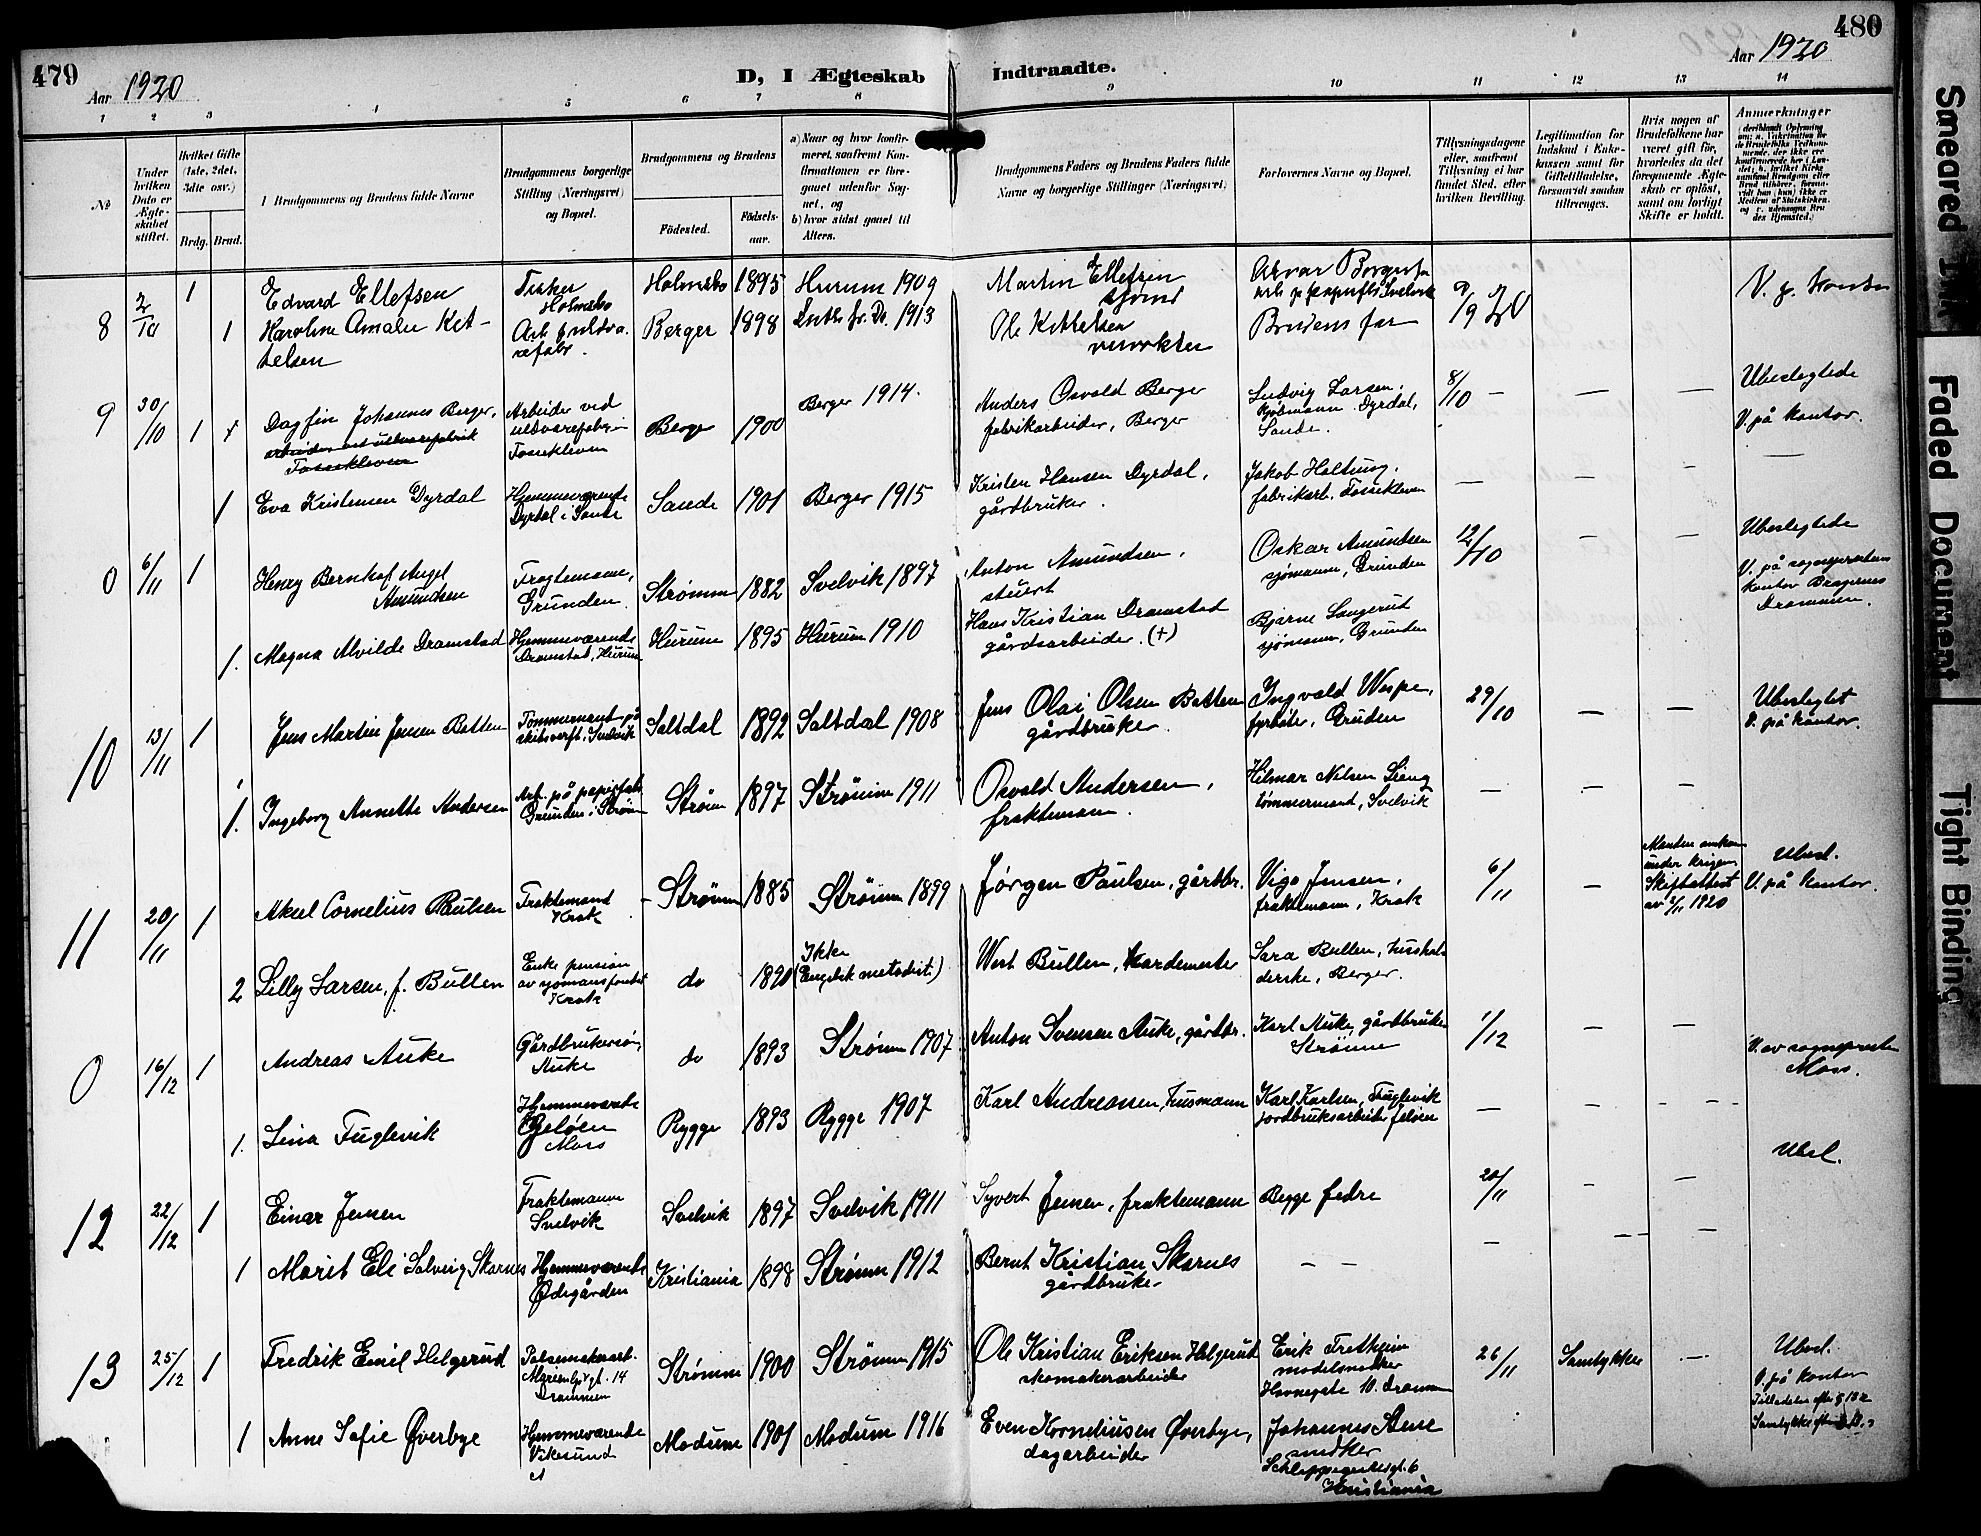 479
Aar 1920
D, I Ægteskab Indtraadte.
480
Aar 1920
1 2 3 4 5 6 7 8 9 10 11 12 13 14
No
Under hvilken Dato er Ægteskabet stiftet.
Hvilket Gifte (1ste, 2det, 3die osv.)
Brdg. Brud.
Brudgommens og Brudens fulde Navne
Brudgommens borgerlige Stilling (Næringsvei) og Bopæl.
Brudgommens og Brudens
Fødested.
Fødselsaar.
a) Naar og hvor konfirmeret, saafremt Konfirmationen er foregaaet udenfor Sognet, og
b) hvor sidst gaaet til Alters.
Brudgommens Faders og Brudens Faders fulde Navne og borgerlige Stillinger (Næringsvei)
Forlovernes Navne og Bopæl.
Tillysningsdagene eller, saafremt Tillysning ei har fundet Sted, efter hvilken Bevilling.
Legitimation for Indskud i Enkekassen samt for Giftetilladelse, forsaavidt saadan tiltrænges.
Hvis nogen af Brudefolkene har været gift før, hvorledes da det foregaaende Ægteskab er opløst, samt om lovligt Skifte er holdt.
Anmerkninger
8 2/10 1 Edvard Ellefsen Fisker Holmsbo Holmsbo 1895 Hurum 1909 Martin Ellefsen
1 Karoline Amalie Kittelsen Berger 1898 1913 Ole Kittelsen Brudens far
9 30/10 1 Dagfin Johannes Berger, Arbeider ved uldvarefabrik Fossekleven Berger 1900 Berger 1914. Anders Osvald Berger fabrikarbeider, Berger Ludvig Larsen. Kjøbmann. Dyrdal, Sande. 8/10 — — — Ubeslegtede V. på kontor.
arbeider ved uldvarefabrik
Fossekleven
1 Eva Kristensen Dyrdal Hjemmeværende Dyrdal i Sande Sande 1901 Berger 1915 Kristen Hansen Dyrdal, gårdbruker. Jakob Holtung. fabrikarb. Fossekleven — — — —
0 6/11 1 Henry Bernhof Angel Amundsen Fragtemann, Grunden. Strømm 1882 Svelvik 1897 Anton Amundsen, stuert Oskar Amundsen sjømann, Grunden 12/10 — — Ubeslegtede V. på sogneprestens kontor Bragernes Drammen.
1. Magna Alvilde Dramstad Hjemmeværende Dramstad, Hurum Hurum 1895 Hurum 1910 Hans Kristian Dramstad gårdsarbeider. (+) Bjarne Langerud sjømann, Grunden
10 13/11 1 Jens Martin Jensen Botten Tømmermand på skibsverft, Svelvik Saltdal 1892 Saltdal 1908 Jens Olai Olsen Botten gårdbruker Ingvald Wespe, fyrbøter, Grunden 29/10 — — Ubeslegtet V. på kontor.
1. Ingeborg Annette Andersen Arb. på papirfabr. Grunden i Strøm Strøm 1897 Strømm 1911 Osvald Andersen, fraktemann. Hilmar Nilsen Lieng tømmermand, Svelvik — — —
11 20/11 1 Aksel Cornelius Paulsen Fraktemand Krok Strømm 1885 Strømm 1899 Jørgen Paulsen, gårdbr. Vigo Jensen, fraktemann, Krok 6/11 — Manden omkom under krigen Skifteattest av 2/11 1920 Ubesl. V. på kontor.
2 Lilly Larsen, f. Bullen Enke pension av sjømansfondet Krok do 1890 Ikke (Engelsk metodist.) West Bullen, Kardemester Sara Bullen, husholderske, Berger.
0 16/12 1 Andreas Auke Gårdbrukersøn, Auke do 1893 Strømm 1907 Anton Svensen Auke, gårdbr. Karl Auke, gårdbruker Strømm 1/12 — — V. av sognepresten Moss.
1. Lina Fuglevik Hjemmeværende Geløen Moss Rygge 1893 Rygge 1907 Karl Andreassen, husmann Karl Karlsen, Fuglevik jordbruksarbeider Jeløen — — — Ubesl.
12 22/12 1 Einar Jensen Fraktemann Svelvik Svelvik 1897 Svelvik 1911 Syvert Jensen, fraktemann Begge fedre 20/11 — —
1 Marit Eli Solveig Skarnes Hjemmeværende Ødegården Kristiania 1898 Strømm 1912 Bernt Kristian Skarnes gårdbruker — — — — —
13 25/12 1 Fredrik Emil Helgerud Pølsemakerarb. gt. 14 Drammen Strømm 1900 Strømm 1915 Ole Kristian Eriksen Helgerud skomakerarbeider Erik Tretheim modelsnekker Havnegate 10. Drammen 26/11 Samtykke — Ubesl. V. på kontor
1 Anne Sofie Øverbye Hjemmeværende Vikesund Modum 1901 Modum 1916 Even Korneliusen Øverbye, dagarbeider Johannes Stene snedker Schleppegrellsgt. 6 Kristiania
Smeared Ink
Faded Document
Tight Binding